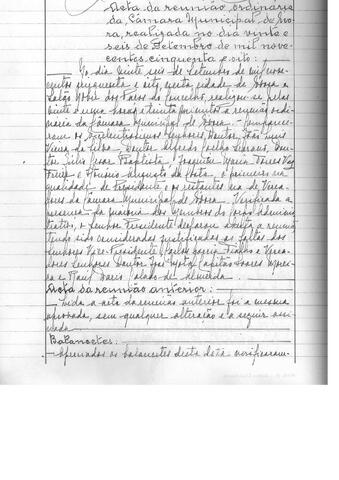 Acta da reunião ordinária
da Câmara Municipal de Évo-
ra, realizada no dia vinte e
seis de Setembro de mil nove-
centos cinquenta e oito:
No dia vinte seis de Setembro de mil nove-
centos cinquenta e oito, nesta cidade de Évora e
Salão Nobre dos Paços do Concelho, realizou-se, pelas
vinte e uma horas e trinta minutos a reunião ordi-
nária da Câmara Municipal de Évora. Compare-
ceram os Excelentíssimos Senhores Doutor João Luís
Vieira da Silva, Doutor Alfredo Coelho, Dou-
tor Júlio César Baptista, Joaquim Maria Torres Vaz
Freire e António Augusto da Costa, o primeiro na
qualidade de Presidente e os restantes na de Verea-
dores da Câmara Municipal de Évora. Verificada a
presença da maioria dos membros do corpo adminis-
trativo, o Senhor Presidente declarou aberta a reunião
tendo sido consideradas justificadas as faltas dos
Senhores Vice-Presidente Carlos Maria e Verea-
dores Senhores Doutor José Capitão Soares Morei-
ra e Dario Calado de Almeida.
Acta da reunião anterior:
Lida a acta da reunião anterior foi a mesma
aprovada, sem qualquer alteração e a seguir assi-
nada.
Balancetes:
Apreciados os balancetes desta data verificaram-